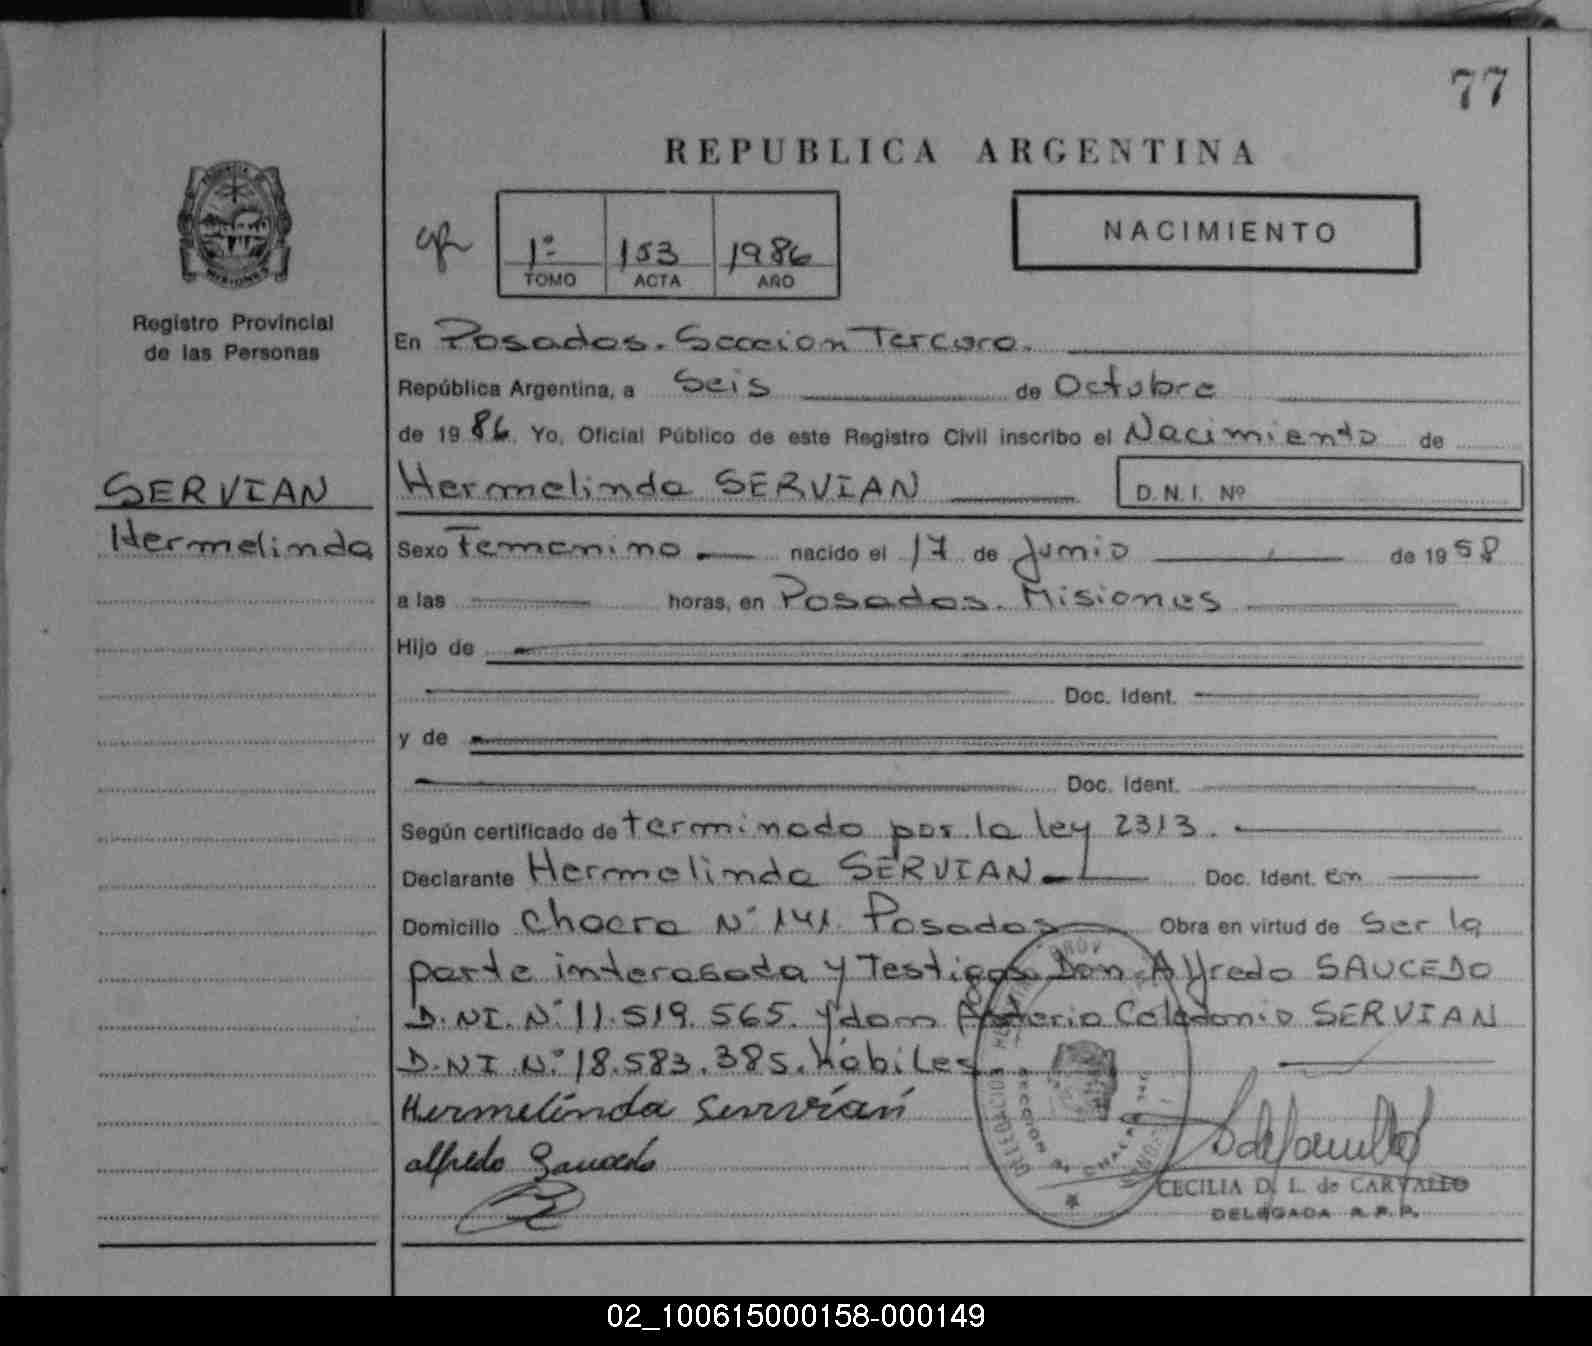 77
REPUBLICA ARGENTINA
1º 153 1986
TOMO ACTA AÑO
NACIMIENTO
Registro Provincial
de las Personas
En Posadas. Seccion Tercera.
República Argentina, a Seis de Octubre
de 1986. Yo, Oficial Público de este Registro Civil inscribo el Nacimiento de
SERVIAN
Hermelinda
Hermelinda SERVIAN D. N. I. Nº
Sexo Femenino nacido el 17 de Junio de 1958
a las horas, en Posadas. Misiones
Hijo de
Doc. Ident.
y de
Doc. Ident.
Según certificado de terminado por la ley 2313.
Declarante Hermelinda SERVIAN Doc. Ident. en
Domicilio Chacra Nº 141. Posadas Obra en virtud de Ser la
parte interesada y Testigos Don Alfredo SAUCEDO
D.NI. Nº 11.519.565. y don Celedonio SERVIAN
D.NI. Nº 18.583.385. hábiles.
Hermelinda Servián
alfredo Saucedo
CECILIA D. L. de CARVALLO
DELEGADA R. P. P.
02_100615000158-000149